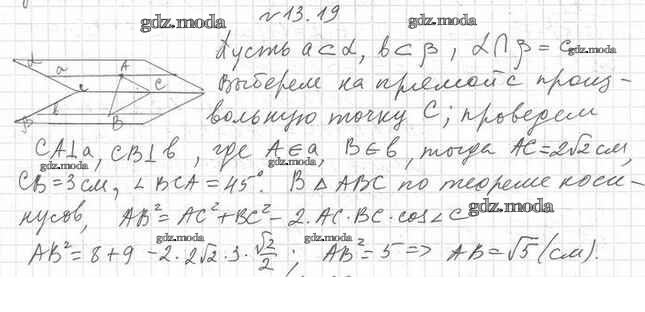 №13.19
gdz.moda
gdz.moda
Пусть a⊂α, b⊂β, α∩β = c.
gdz.moda
α
a
A
c
C
b
β
B
Выберем на прямой c произ-
вольную точку C; проведем
CA⊥a, CB⊥b, где A∈a, B∈b, тогда AC=2√2 см,
gdz.moda
gdz.moda
CB=3 см, ∠BCA=45°. В △ABC по теореме коси-
нусов, AB²=AC²+BC²-2·AC·BC·cos∠C
gdz.moda
gdz.moda
gdz.moda
AB²=8+9-2·2√2·3·√2/2; AB²=5 => AB=√5 (см).